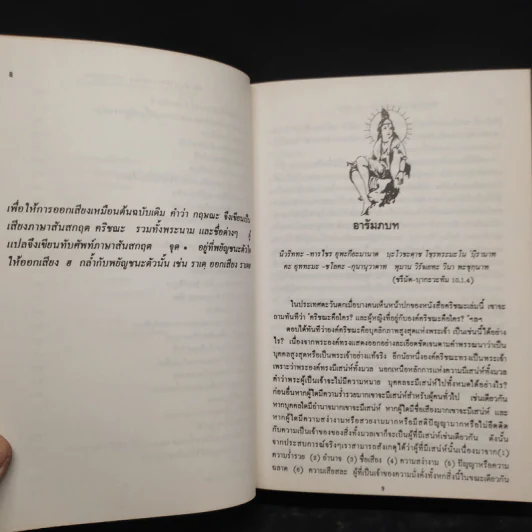 8
เพื่อให้การออกเสียงเหมือนต้นฉบับเดิม คำว่า กฤษณะ จึงเขียนเป็น
เสียงภาษาสันสกฤต คริชณะ รวมทั้งพระนาม และชื่อต่างๆ ผู้
แปลจึงเขียนทับศัพท์ภาษาสันสกฤต จุด • อยู่ที่พยัญชนะตัวใด
ให้ออกเสียง ฮ กล้ำกับพยัญชนะตัวนั้น เช่น ราเดฺ ออกเสียง
อารัมภบท
นิวริททะ
(ชรีมัด-บฺากะวะทัม 10.1.4)
ในประเทศตะวันตกเมื่อบางคนเห็นหน้าปกของหนังสือคริชณะเล่มนี้ เขาจะ
ถามทันทีว่า "คริชณะคือใคร? และผู้หญิงที่อยู่กับองค์คริชณะคือใคร?
ตอบได้ทันทีว่าองค์คริชณะคือบุคลิกภาพสูงสุดแห่งพระเจ้า เป็นเช่นนี้ได้อย่าง
ไร? เนื่องจากพระองค์ทรงแสดงออกอย่างละเอียดชัดเจนตามคำพรรณนาว่าเป็น
บุคคลสูงสุดหรือเป็นพระเจ้าอย่างแท้จริง อีกนัยหนึ่งองค์คริชณะทรงเป็นพระเจ้า
เพราะว่าพระองค์ทรงมีเสน่ห์ทั้งมวล นอกเหนือหลักการแห่งความมีเสน่ห์ทั้งมวล
คำว่าพระผู้เป็นเจ้าจะไม่มีความหมาย บุคคลจะมีเสน่ห์ไปทั้งหมดได้อย่างไร?
ก่อนอื่นหากผู้ใดมีความร่ำรวยมากเขาจะมีเสน่ห์สำหรับผู้คนทั่วไป เช่นเดียวกัน
หากบุคคลใดมีอำนาจมากเขาจะมีเสน่ห์ หากผู้ใดมีชื่อเสียงมากเขาจะมีเสน่ห์ และ
หากผู้ใดมีความสง่างามหรือสวยงามมากหรือมีสติปัญญามากหรือไม่ยึดติด
กับความเป็นเจ้าของของสิ่งทั้งมวลเขาก็จะเป็นผู้ที่มีเสน่ห์เช่นเดียวกัน ดังนั้น
จากประสบการณ์จริงๆเราสามารถสังเกตได้ว่าผู้ที่มีเสน่ห์นั้นเนื่องมาจาก(1)
ความร่ำรวย (2) อำนาจ (3) ชื่อเสียง (4) ความสง่างาม (5) ปัญญาหรือความ
ฉลาด (6) ความเสียสละ ผู้ที่เป็นเจ้าของความมั่งคั่งทั้งหกสิ่งนี้ในขณะเดียวกัน
9